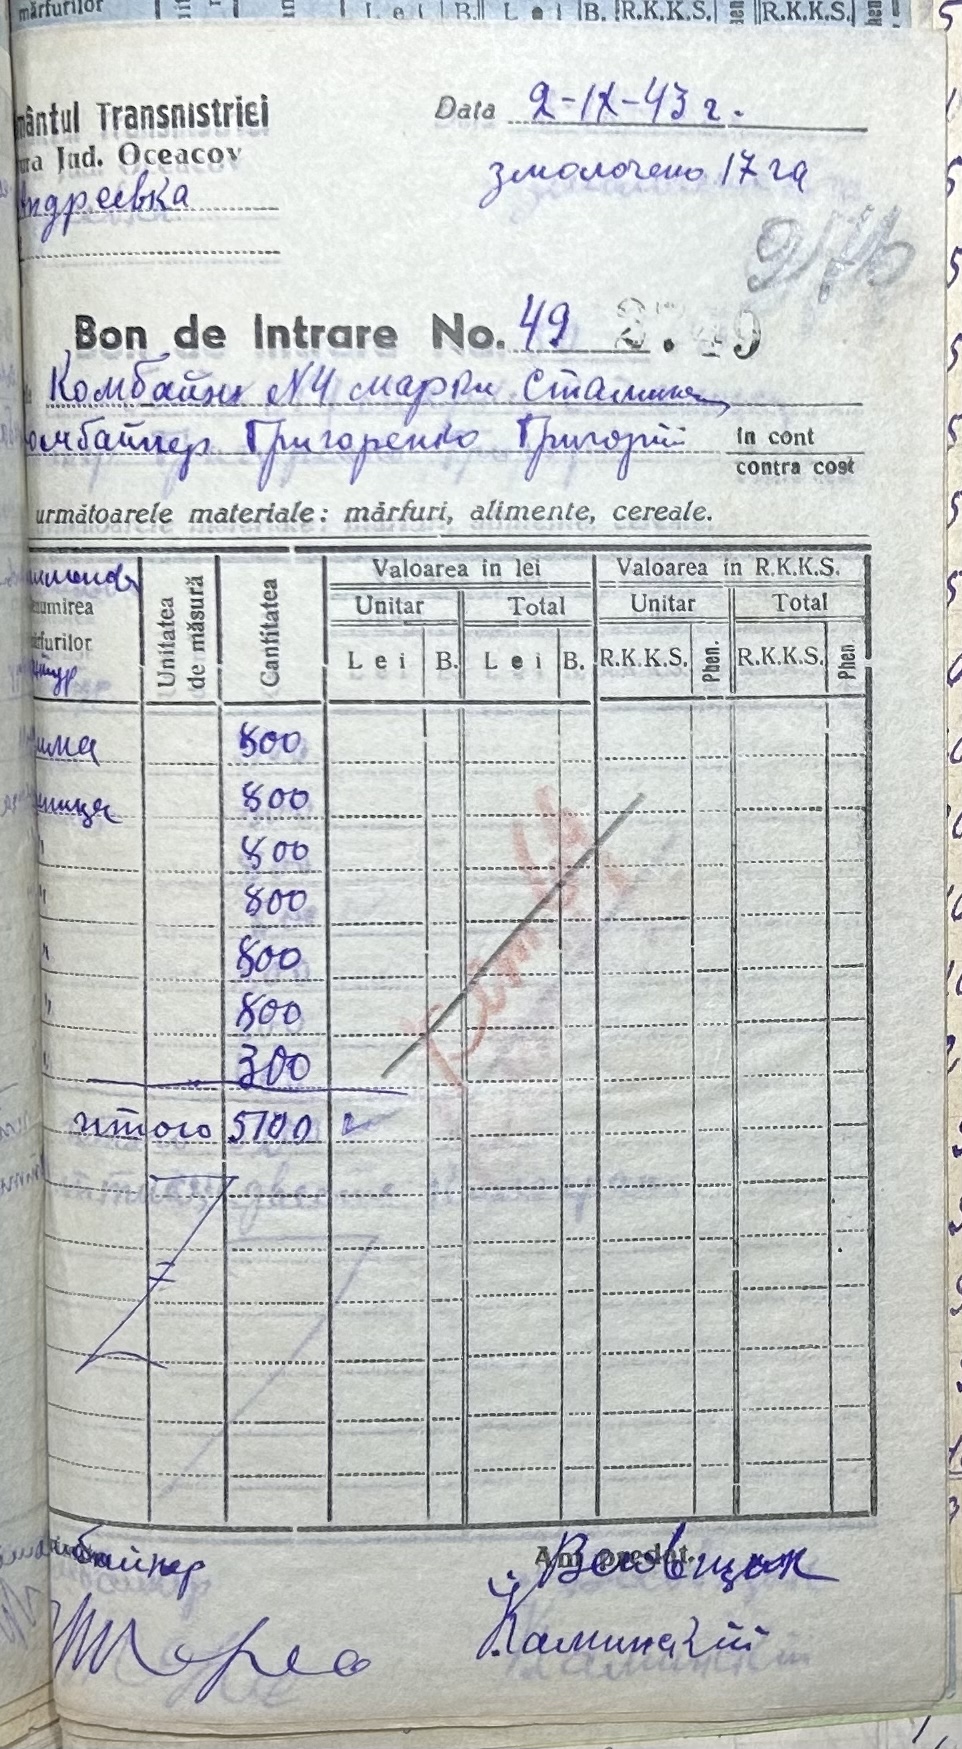 mărfurilor Lei B. Lei B. R.K.K.S. R.K.K.S.
mântul Transnistriei
ura Jud. Oceacov
Андреевка
Data 2-IX-43 г.
змолочено 17 га
Bon de Intrare No. 49
Комбайн N4 марки Сталинец
омбайнер Григоренко Григорий
in cont
contra cost
următoarele materiale: mărfuri, alimente, cereale.
numirea
mărfurilor
Unitatea de măsură
Cantitatea
Valoarea in lei
Valoarea in R.K.K.S.
Unitar Total Unitar Total
Lei B. Lei B. R.K.K.S. Phen. R.K.K.S. Phen
зима 800
шеница 800
" 800
" 800
" 800
" 800
" 300
итого 5100
Am predat.
байнер
Вовещик
Каминский